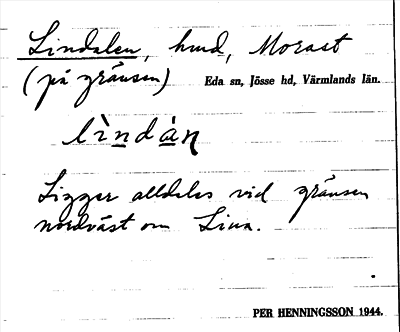 Lindalen, hmd, Morast
(på gränsen) Eda sn, Jösse hd, Värmlands län.
lìndàn
Ligger alldeles vid gränsen
nordväst om Linn.
PER HENNINGSSON 1944.